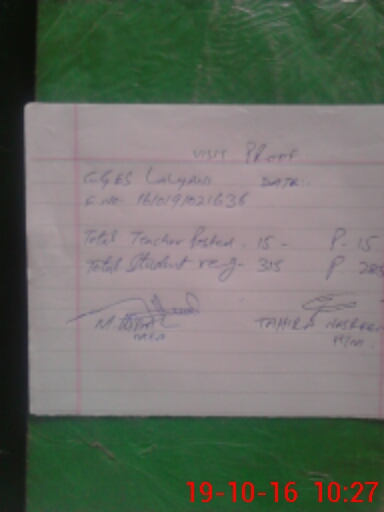 VISIT PROOF
GGES LALYANI DATE:-
F. NO. 16/019/021636
Total Teacher Posted. 15 - P. 15
Total Student reg- 315 P 285
M.
MEA
TAHIRA NASREEN
HTM
19-10-16 10:27